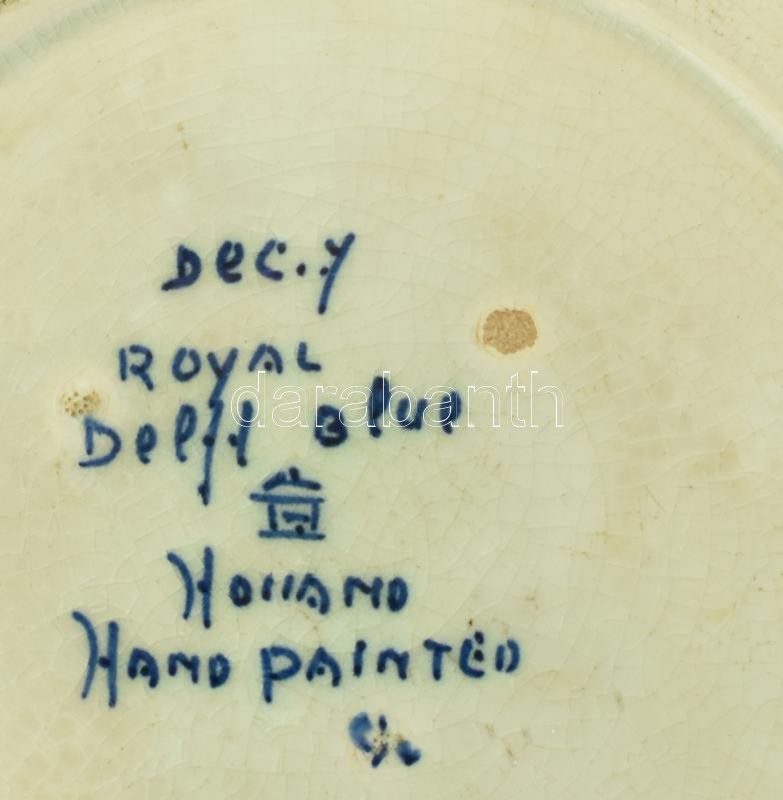 Dec. y
ROYAL
Delft Blue
HOLLAND
HAND PAINTED
darabanth